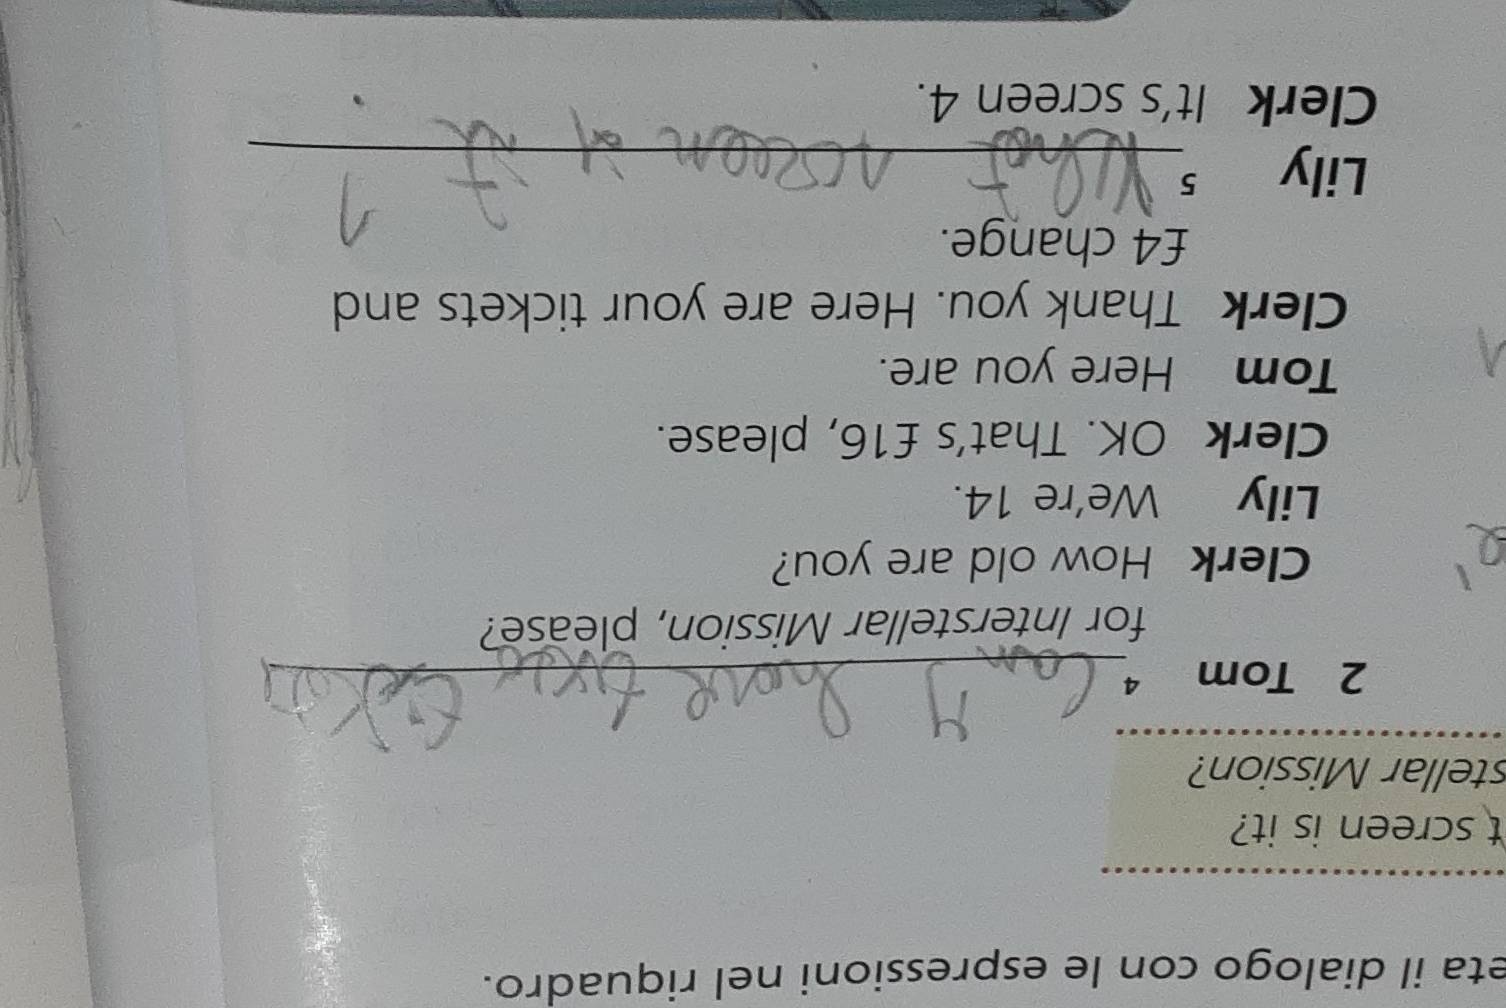 eta il dialogo con le espressioni nel riquadro.
t screen is it?
stellar Mission?
2 Tom 4 Can I have two
for Interstellar Mission, please?
Clerk How old are you?
Lily We're 14.
Clerk OK. That's £16, please.
Tom Here you are.
Clerk Thank you. Here are your tickets and
£4 change.
Lily 5 What screen is it ?
Clerk It's screen 4.